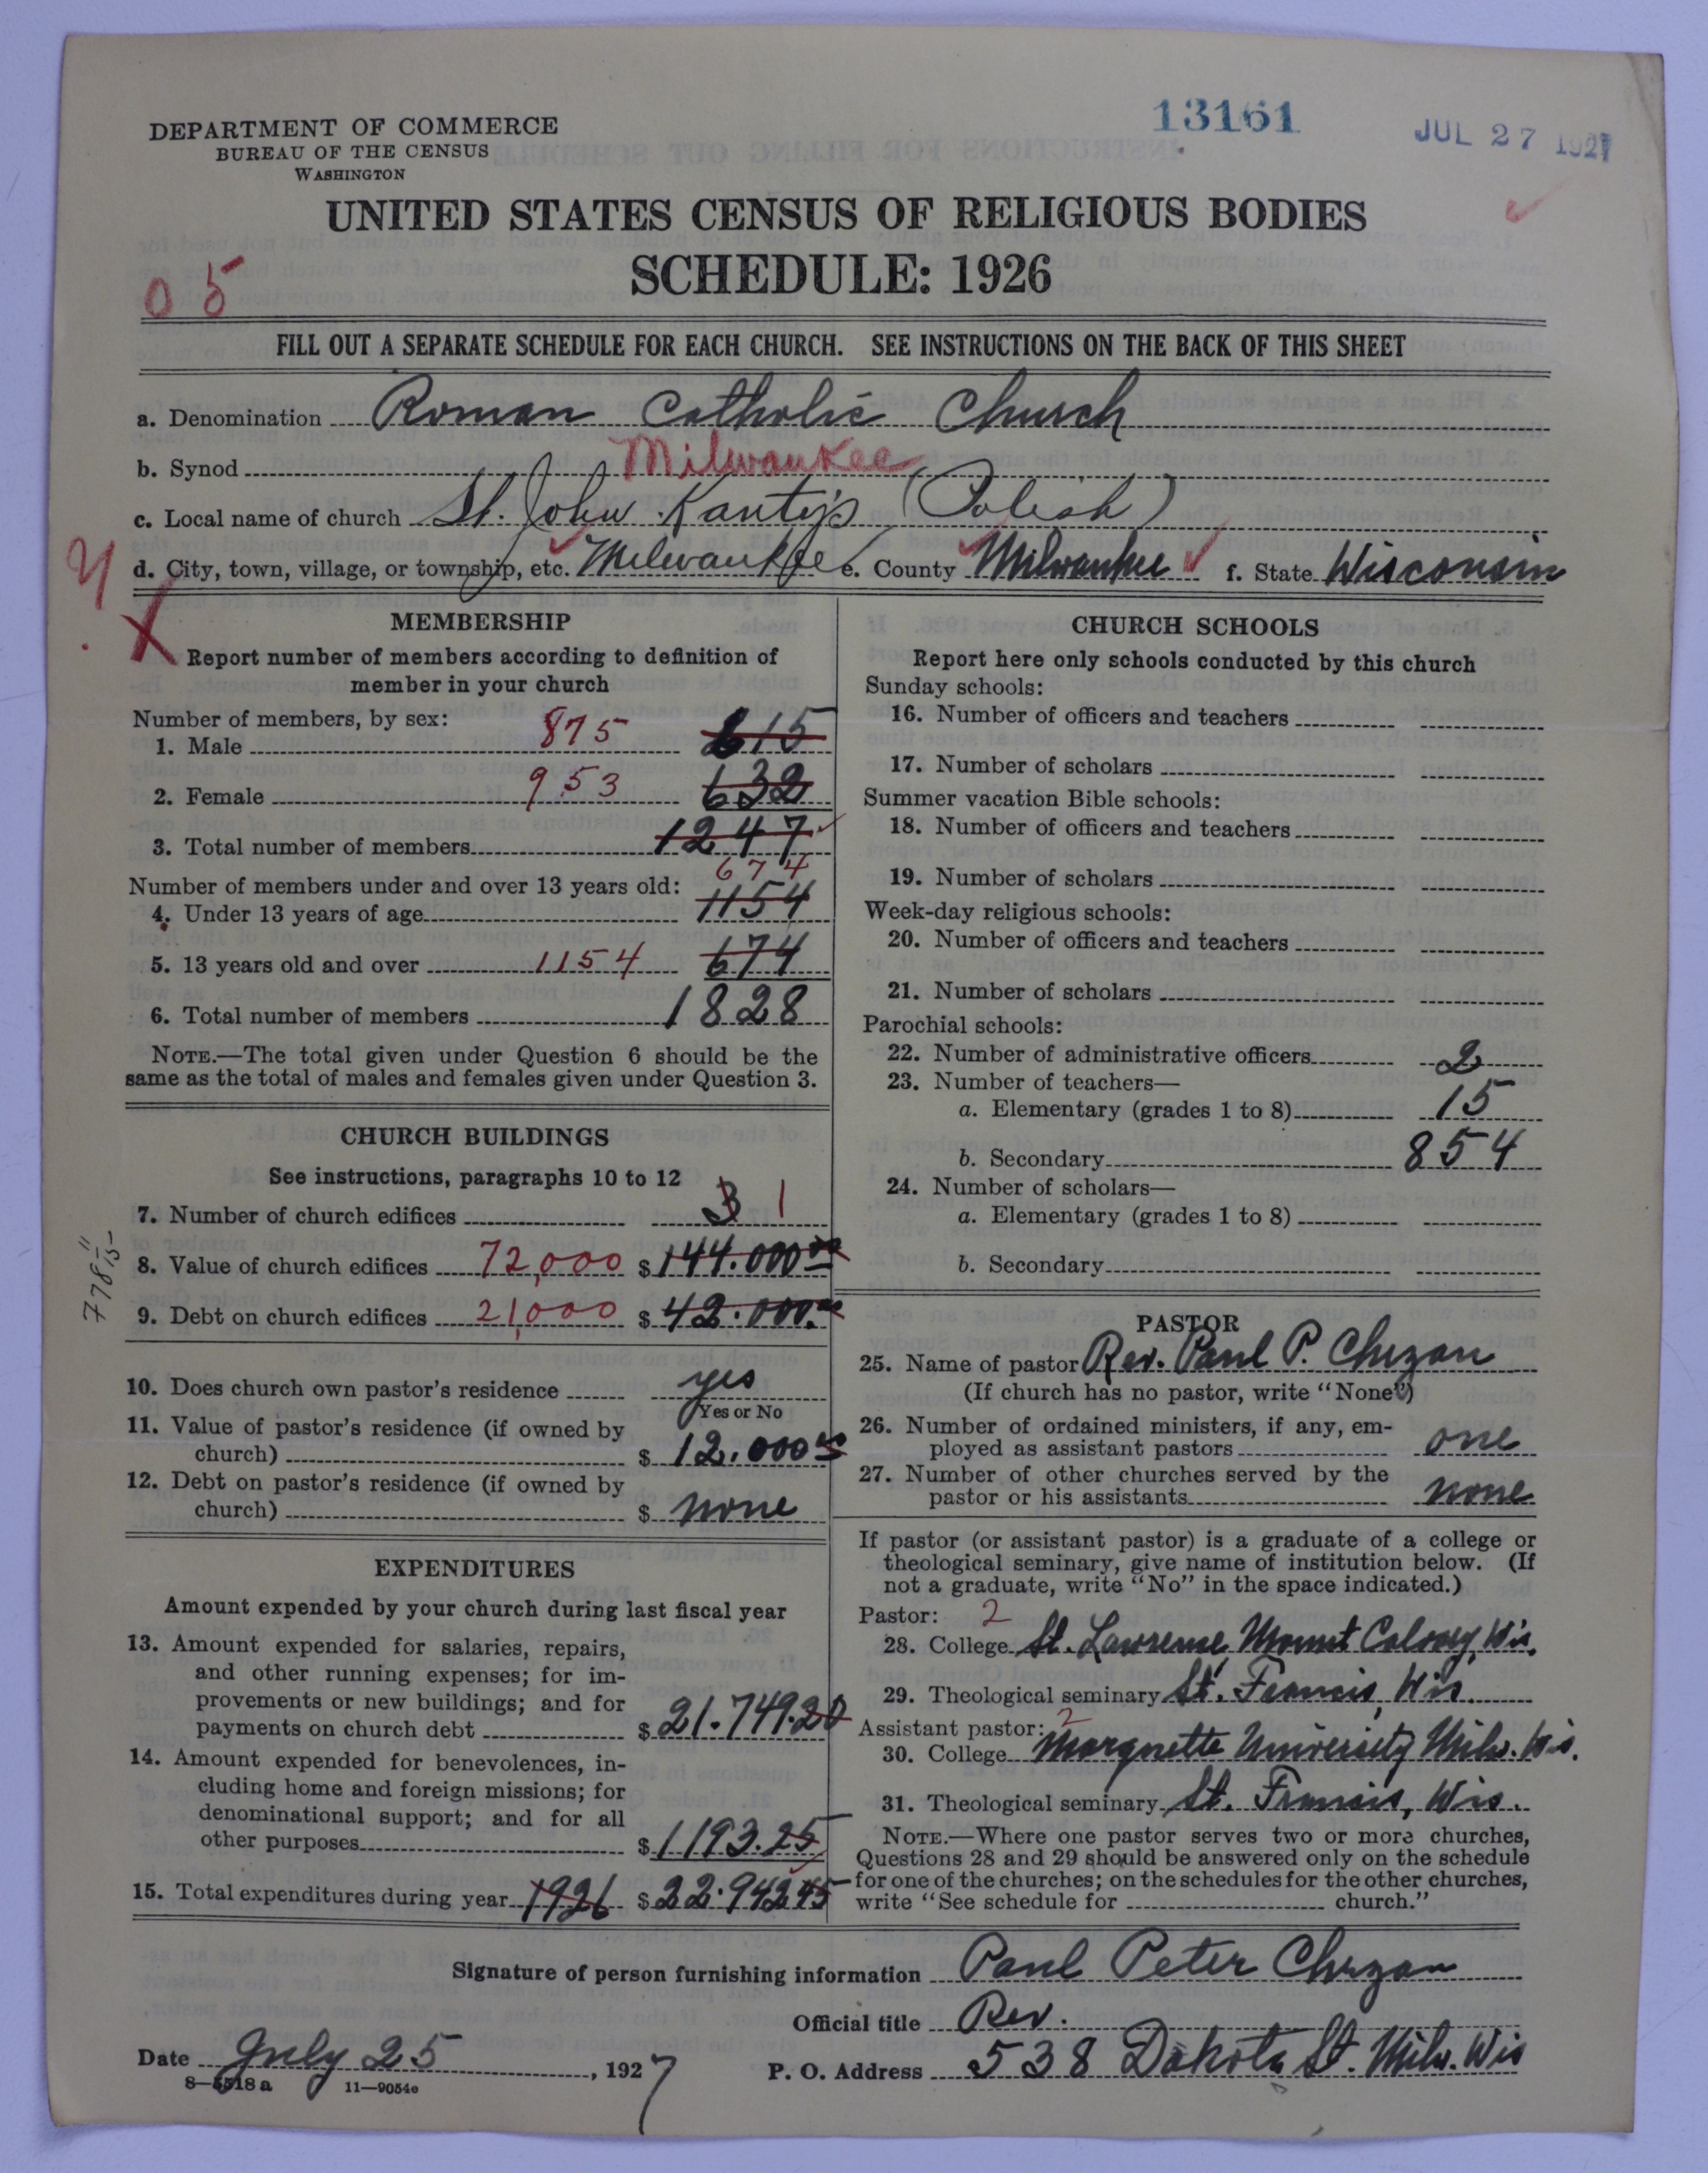 13161
JUL 27 1927
DEPARTMENT OF COMMERCE
BUREAU OF THE CENSUS
WASHINGTON
UNITED STATES CENSUS OF RELIGIOUS BODIES
SCHEDULE: 1926
05
FILL OUT A SEPARATE SCHEDULE FOR EACH CHURCH. SEE INSTRUCTIONS ON THE BACK OF THIS SHEET
a. Denomination Roman Catholic Church
b. Synod Milwaukee
c. Local name of church St. John Kanty's (Polish)
d. City, town, village, or township, etc. Milwaukee e. County Milwaukee f. State Wisconsin
X
MEMBERSHIP
Report number of members according to definition of
member in your church
Number of members, by sex:
1. Male 875 615
2. Female 953 632
3. Total number of members 1247
674
Number of members under and over 13 years old:
4. Under 13 years of age 1154
5. 13 years old and over 1154 674
6. Total number of members 1828
NOTE.—The total given under Question 6 should be the
same as the total of males and females given under Question 3.
CHURCH BUILDINGS
See instructions, paragraphs 10 to 12
7. Number of church edifices 3 1
8. Value of church edifices 72,000 $144.000.00
9. Debt on church edifices 21,000 $42.000.00
10. Does church own pastor's residence yes
Yes or No
11. Value of pastor's residence (if owned by
church) $12.000.00
12. Debt on pastor's residence (if owned by
church) $ none
EXPENDITURES
Amount expended by your church during last fiscal year
13. Amount expended for salaries, repairs,
and other running expenses; for im-
provements or new buildings; and for
payments on church debt $21.749.20
14. Amount expended for benevolences, in-
cluding home and foreign missions; for
denominational support; and for all
other purposes $1193.25
15. Total expenditures during year 1926 $22.942.45
CHURCH SCHOOLS
Report here only schools conducted by this church
Sunday schools:
16. Number of officers and teachers
17. Number of scholars
Summer vacation Bible schools:
18. Number of officers and teachers
19. Number of scholars
Week-day religious schools:
20. Number of officers and teachers
21. Number of scholars
Parochial schools:
22. Number of administrative officers 2
23. Number of teachers—
a. Elementary (grades 1 to 8) 15
b. Secondary 854
24. Number of scholars—
a. Elementary (grades 1 to 8)
b. Secondary
PASTOR
25. Name of pastor Rev. Paul P. Chrzan
(If church has no pastor, write "None")
26. Number of ordained ministers, if any, em-
ployed as assistant pastors one
27. Number of other churches served by the
pastor or his assistants none
If pastor (or assistant pastor) is a graduate of a college or
theological seminary, give name of institution below. (If
not a graduate, write "No" in the space indicated.)
Pastor: 2
28. College St. Lawrence, Mount Calvary, Wis.
29. Theological seminary St. Francis, Wis.
Assistant pastor: 2
30. College Marquette University Milw. Wis.
31. Theological seminary St. Francis, Wis.
NOTE.—Where one pastor serves two or more churches,
Questions 28 and 29 should be answered only on the schedule
for one of the churches; on the schedules for the other churches,
write "See schedule for church."
Signature of person furnishing information Paul Peter Chrzan
Official title Rev.
Date July 25, 1927 P. O. Address 538 Dakota St. Milw. Wis
8—5518a 11—9054e